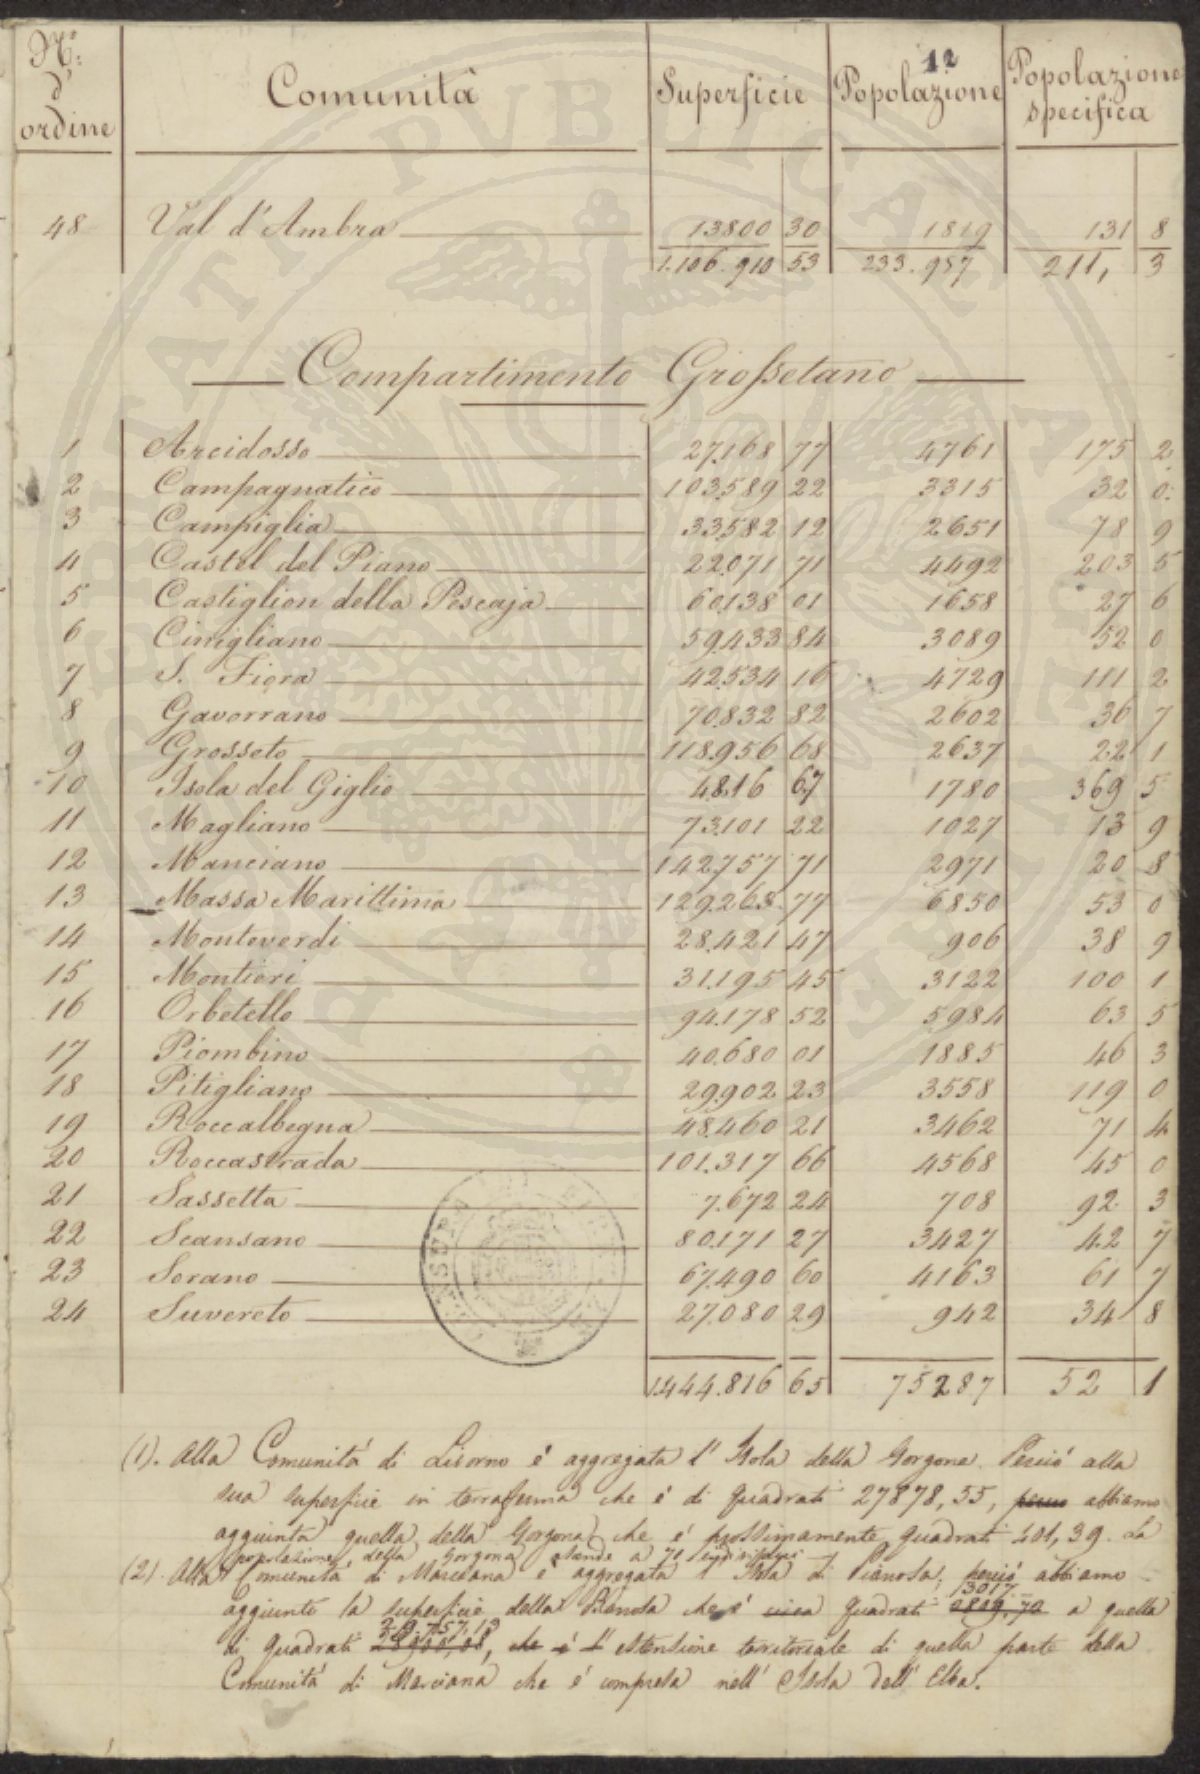 12
N.º d' ordine | Comunità | Superficie | Popolazione | Popolazione specifica
48 Val d'Ambra 13800 30 1819 131 8
1.106.910 53 233.957 211, 3
Compartimento Grossetano
1 Arcidosso 27.168 77 4761 175 2
2 Campagnatico 103.589 22 3315 32 0
3 Campiglia 33.582 12 2651 78 9
4 Castel del Piano 22.071 71 4492 203 5
5 Castiglion della Pescaja 60.138 01 1658 27 6
6 Cinigliano 59.433 84 3089 52 0
7 S. Fiora 42.534 16 4729 111 2
8 Gavorrano 70.832 82 2602 36 7
9 Grosseto 118.956 68 2637 22 1
10 Isola del Giglio 4.816 67 1780 369 5
11 Magliano 73.101 22 1027 13 9
12 Manciano 142.757 71 2971 20 8
13 Massa Marittima 129.268 77 6850 53 0
14 Monteverdi 28.421 47 906 38 9
15 Montieri 31.195 45 3122 100 1
16 Orbetello 94.178 52 5984 63 5
17 Piombino 40.680 01 1885 46 3
18 Pitigliano 29.902 23 3558 119 0
19 Roccalbegna 48.460 21 3462 71 4
20 Roccastrada 101.317 66 4568 45 0
21 Sassetta 7.672 24 708 92 3
22 Scansano 80.171 27 3427 42 7
23 Sorano 67.490 60 4163 61 7
24 Suvereto 27.080 29 942 34 8
1.444.816 65 75287 52 1
(1). Alla Comunità di Livorno è aggregata l'Isola della Gorgona. Perciò alla
sua superficie in terraferma che è di quadrati 27878,35, abbiamo
aggiunta quella della Gorgona che è prossimamente quadrati 401,39. La
popolazione della Gorgona ascende a 70 individui
(2). Alla Comunità di Marciana è aggregata l'Isola di Pianosa; perciò abbiamo
aggiunto la superficie della Pianosa che è circa quadrati 3017 a quella
di quadrati 29.757,13, che è l'estensione territoriale di quella parte della
Comunità di Marciana che è compresa nell'Isola dell'Elba.